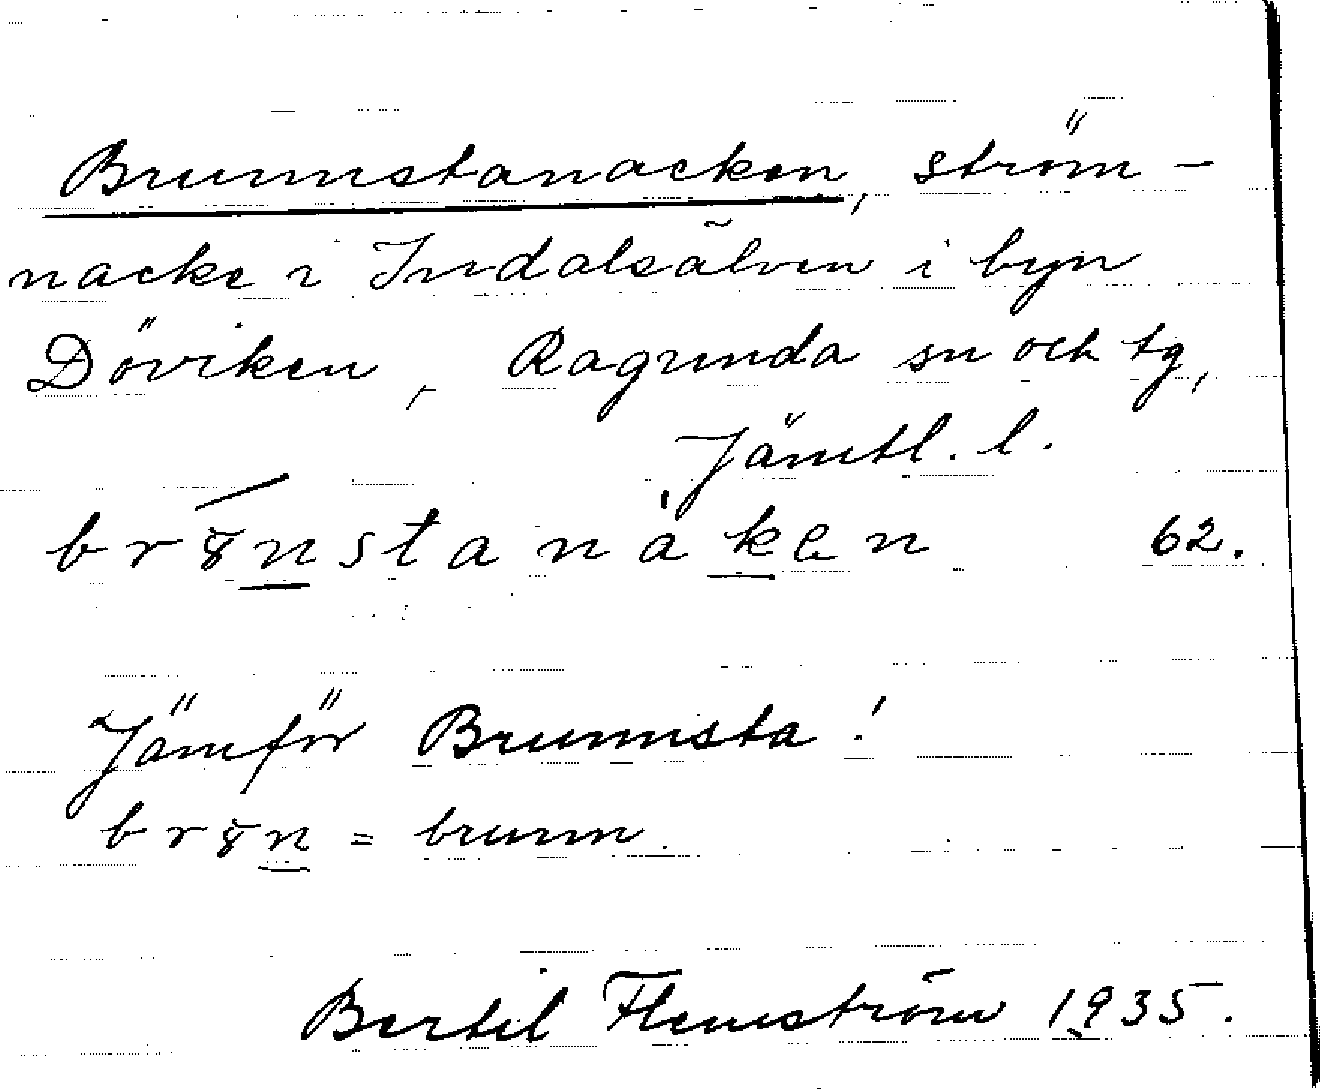 Brunnstanacken, ström-
nacke i Indalsälven i byn
Döviken, Ragunda sn och tg,
Jämtl. l.
brꞩnstanàken 62.
Jämför Brunnsta!
= brunn.
Bertil Flemström 1935.